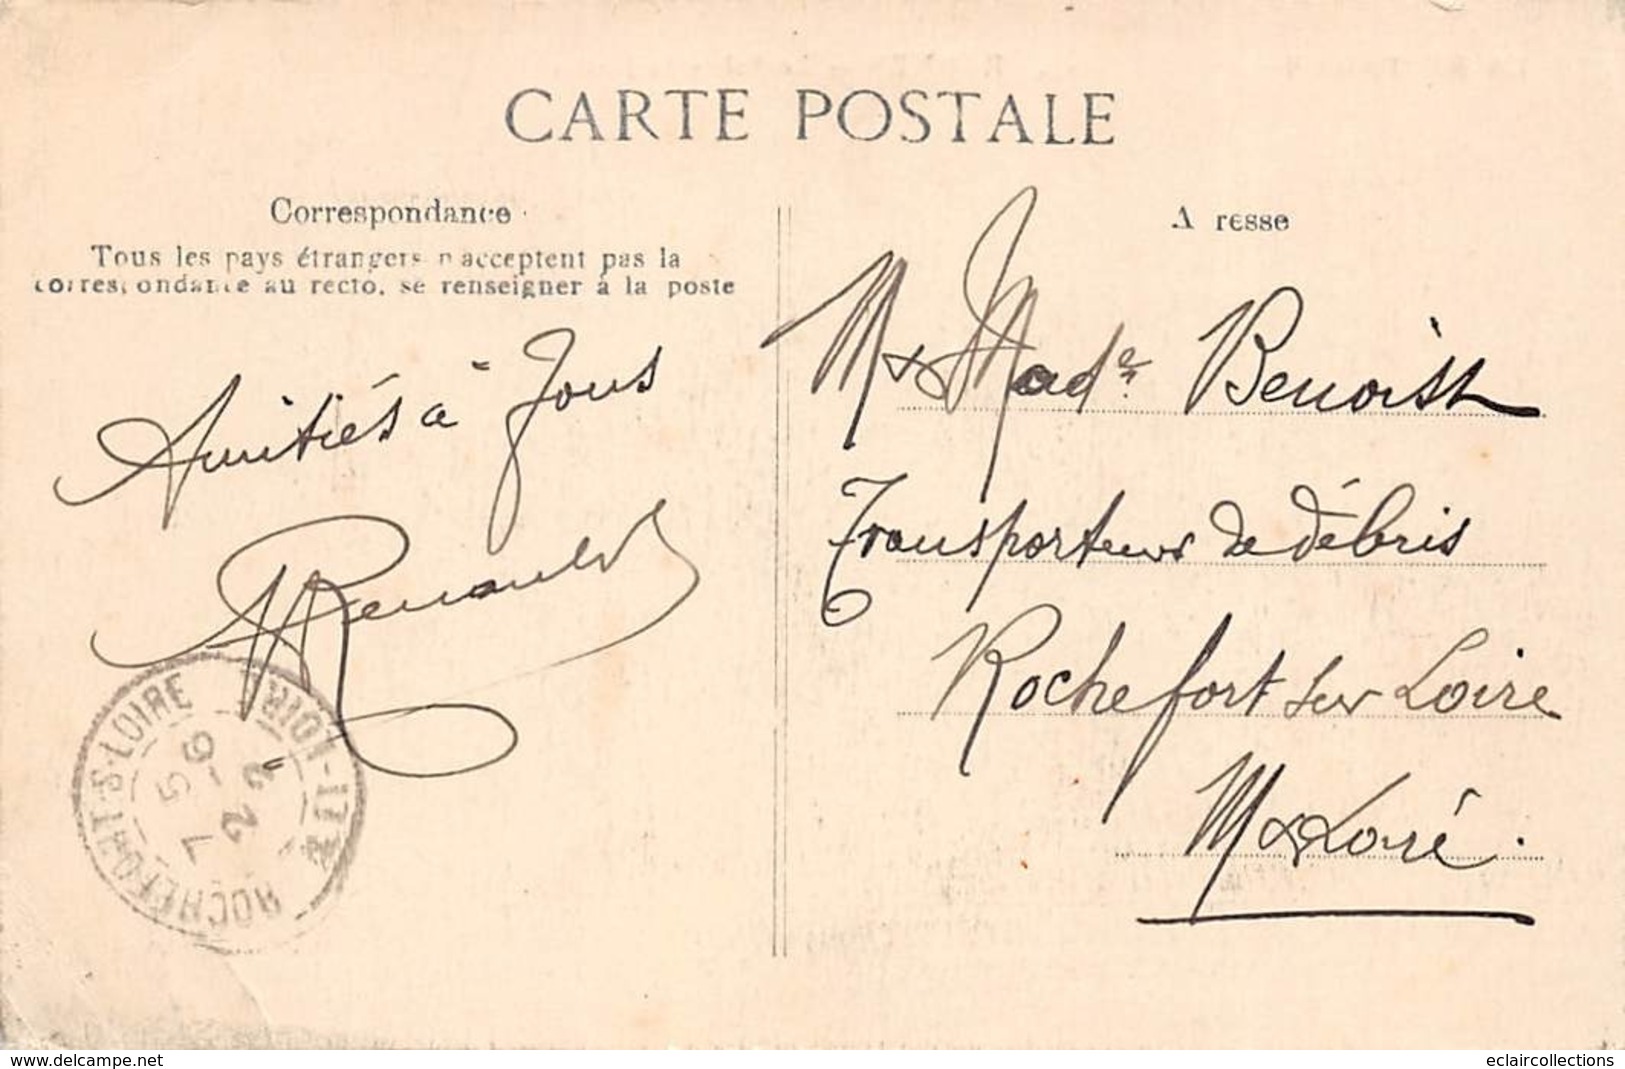 CARTE POSTALE
Correspondance
Tous les pays étrangers n'acceptent pas la
correspondance au recto, se renseigner à la poste
A resse
Amitiés à Tous
Renault
M & Made Benoist
Transporteur de débris
Rochefort sur Loire
M & Loire.
ROCHEFORT-S-LOIRE
7 5
22
www.delcampe.net
eclaircollections